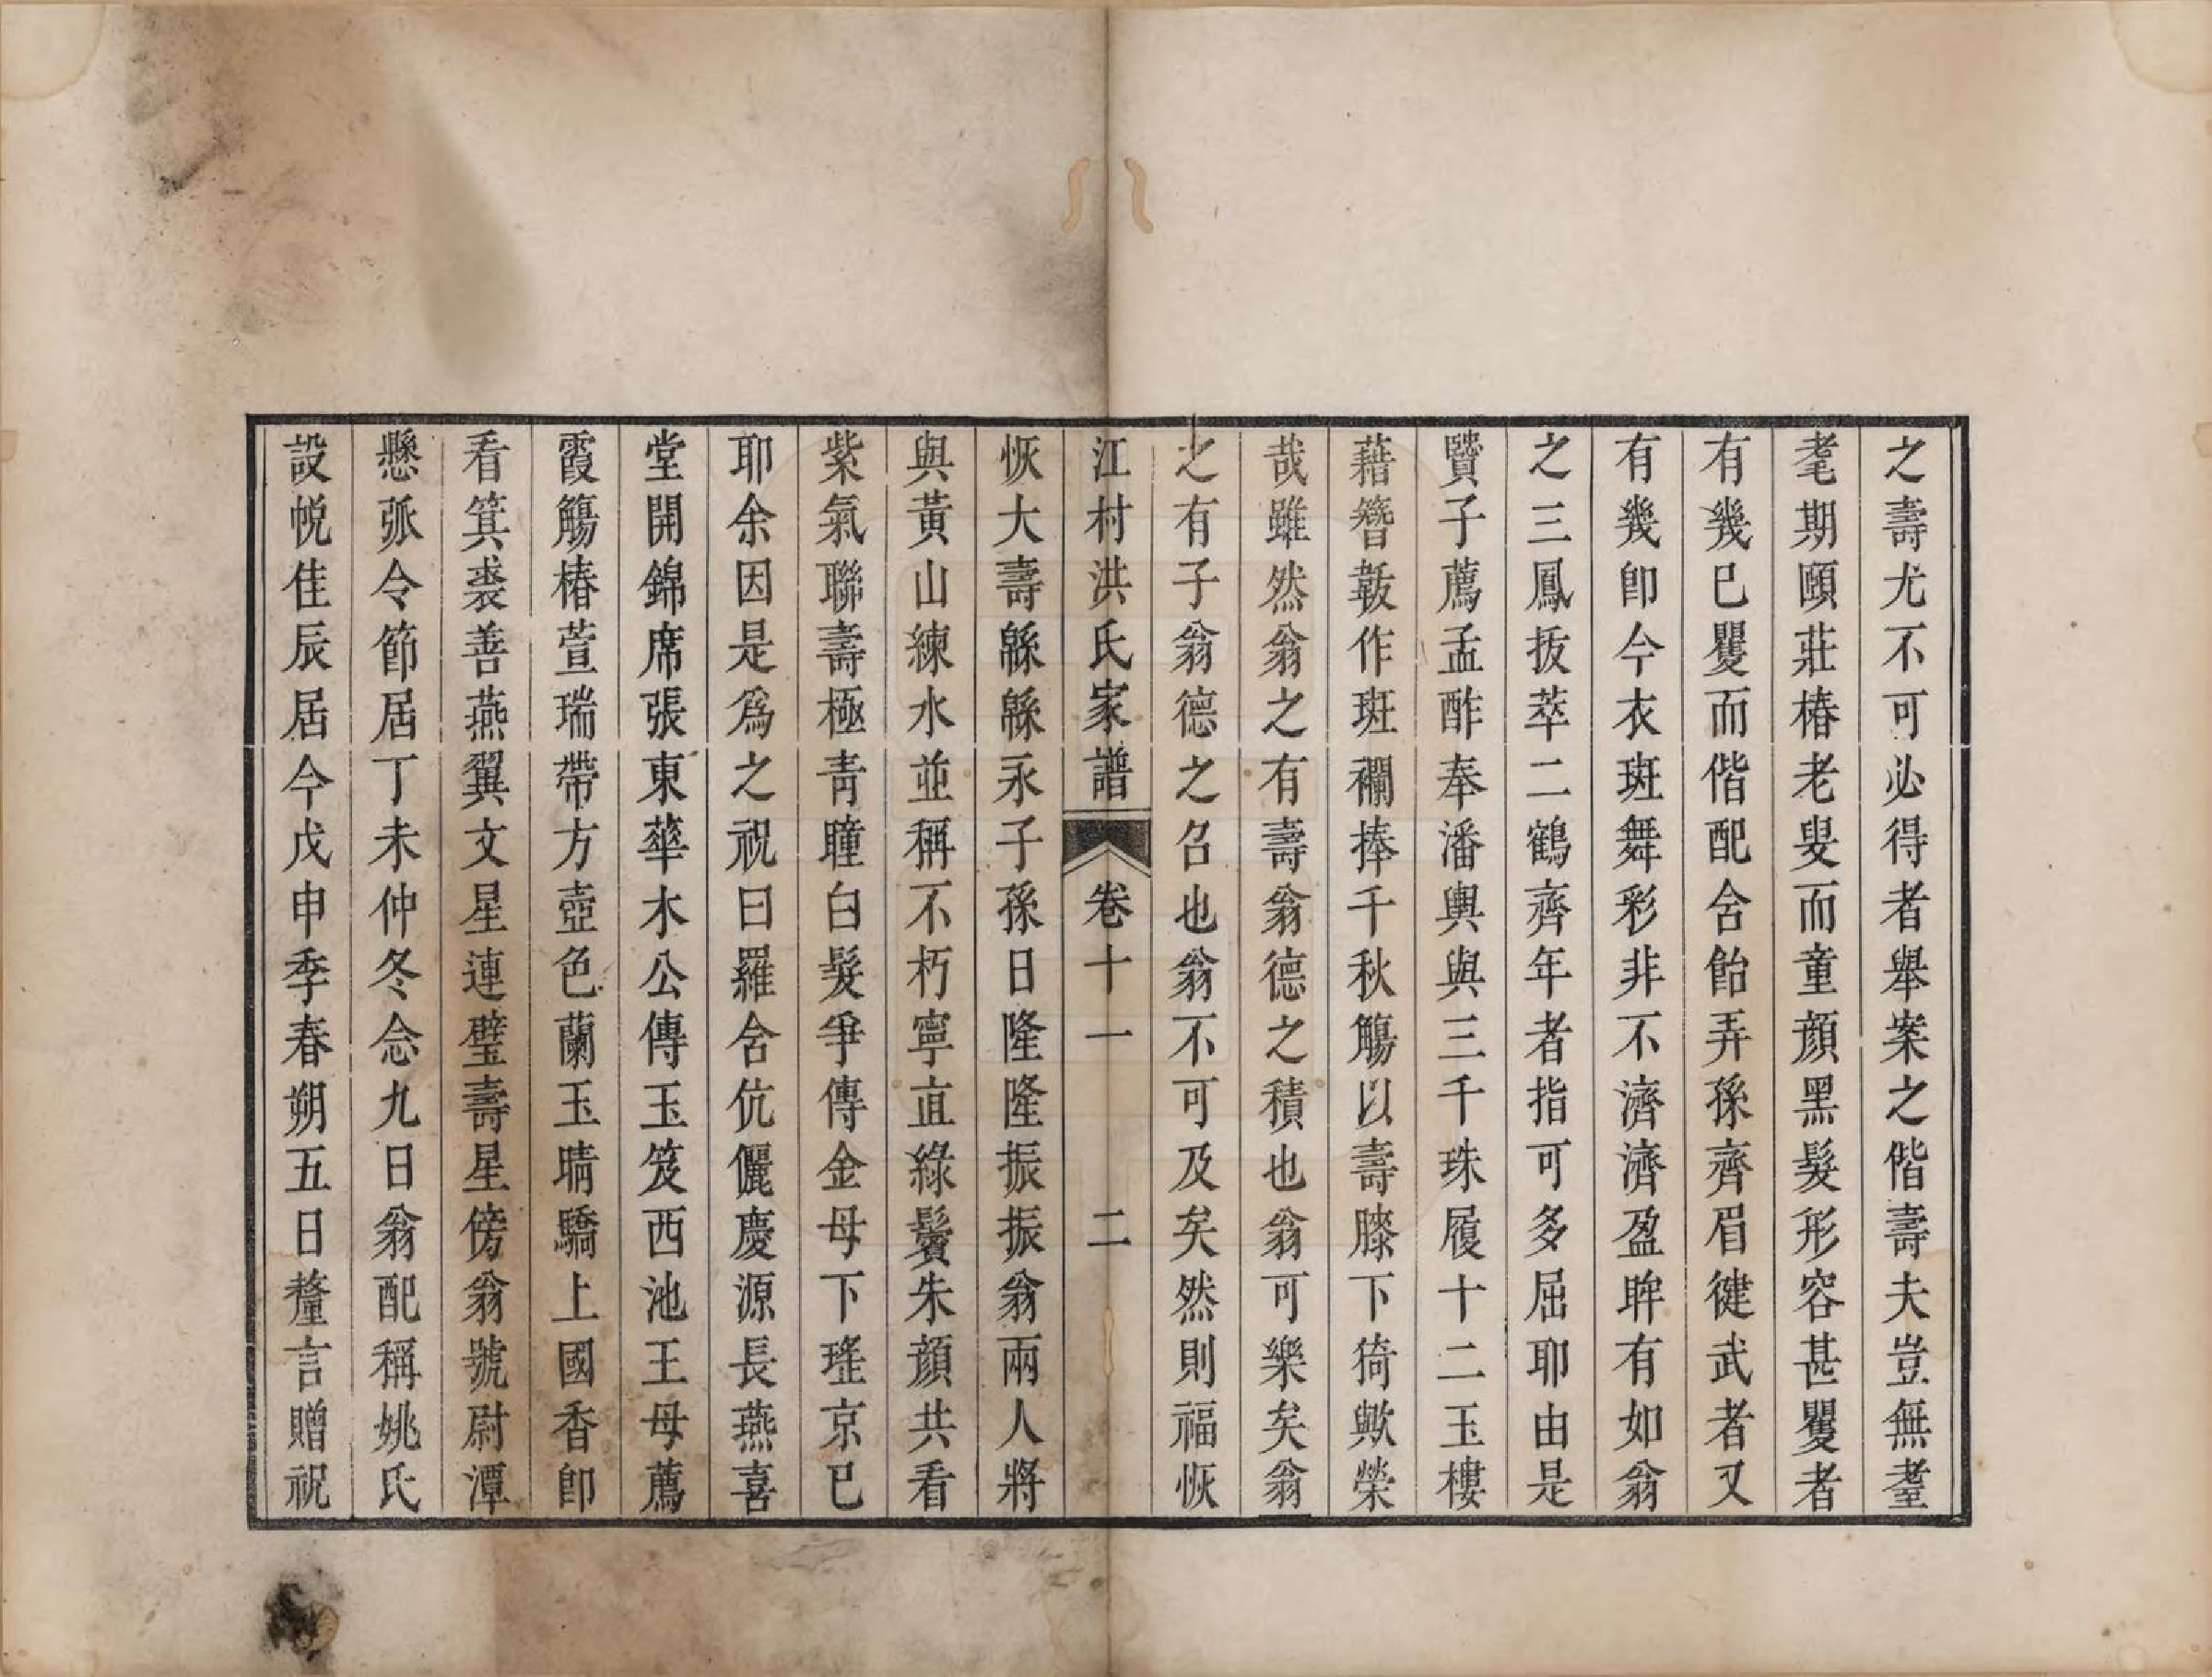 之壽尤不可必得者舉案之偕壽夫豈無耋
耄期頤莊椿老叟而童顏黑髮形容甚矍者
有幾已矍而偕配含飴弄孫齊眉健武者又
有幾卽今衣斑舞彩非不濟濟盈眸有如翁
之三鳳拔萃二鶴齊年者指可多屈耶由是
賢子薦孟酢奉潘輿與三千珠履十二玉樓
藉簪韍作斑襴捧千秋觴以壽膝下猗歟榮
哉雖然翁之有壽翁德之積也翁可樂矣翁
之有子翁德之召也翁不可及矣然則福恢
江村洪氏家譜 卷十一 二
恢大壽緜緜永子孫日隆隆振振翁兩人將
與黃山練水並稱不朽寧直綠鬢朱顏共看
紫氣聯壽極靑瞳白髮爭傳金母下瑤京已
耶余因是爲之祝曰羅含伉儷慶源長燕喜
堂開錦席張東華木公傳玉笈西池王母薦
霞觴椿萱瑞帶方壺色蘭玉晴驕上國香卽
看箕裘善燕翼文星連璧壽星傍翁號尉潭
懸弧令節居丁未仲冬念九日翁配稱姚氏
設帨佳辰居今戊申季春朔五日釐言贈祝